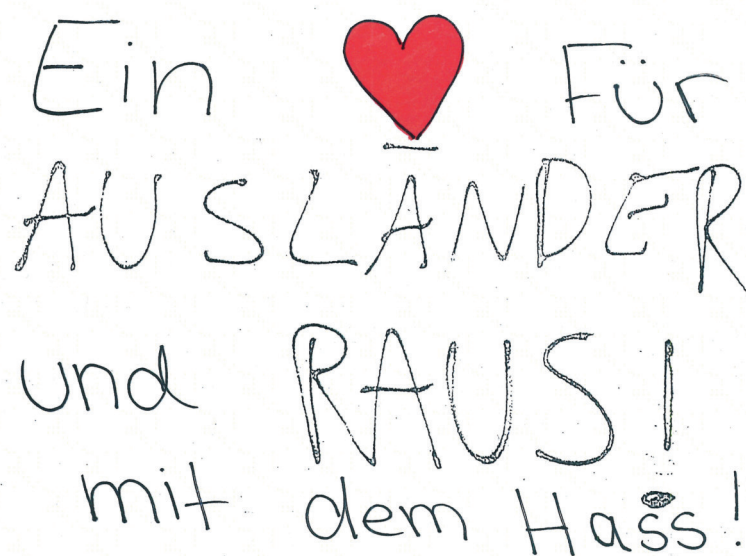 Ein ♥ Für
AUSLÄNDER
und RAUS!
mit dem Hass!